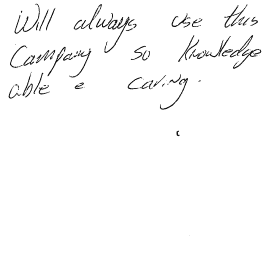 Will always use this
Company so knowledge
able e caring.